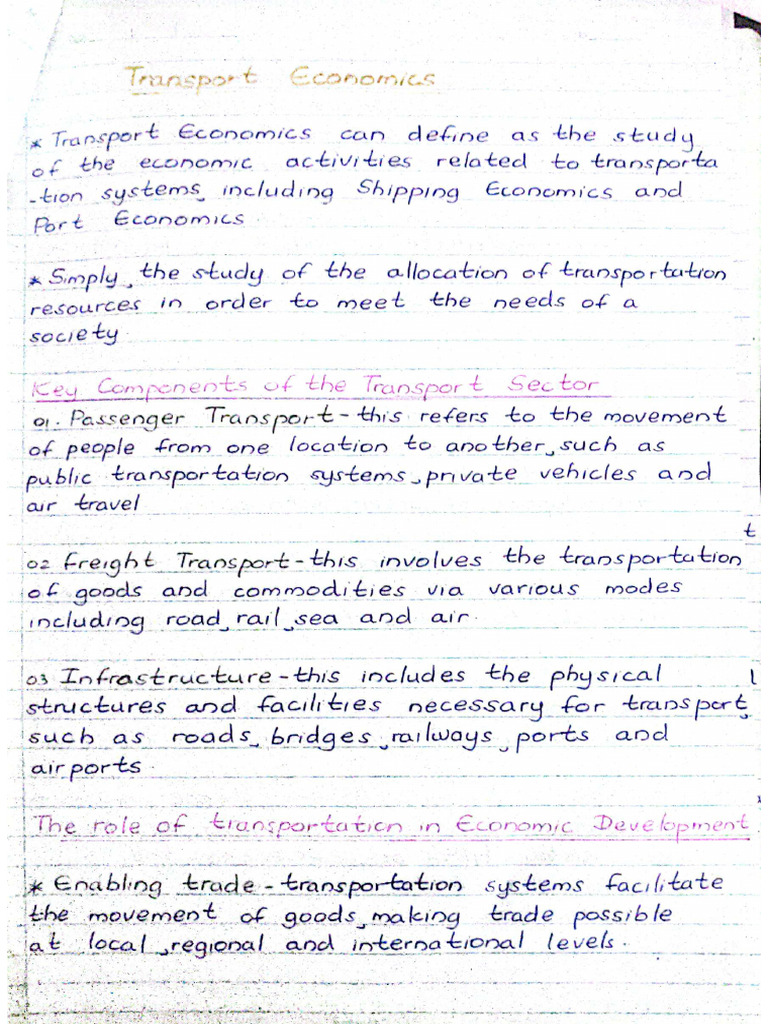 Transport Economics
* Transport Economics can define as the study
of the economic activities related to transporta
-tion systems, including Shipping Economics and
Port Economics.
* Simply, the study of the allocation of transportation
resources in order to meet the needs of a
society.
Key Components of the Transport Sector
01. Passenger Transport - this refers to the movement
of people from one location to another, such as
public transportation systems, private vehicles and
air travel
02 Freight Transport - this involves the transportation
of goods and commodities via various modes
including road, rail, sea and air.
03 Infrastructure - this includes the physical
structures and facilities necessary for transport,
such as roads, bridges, railways, ports and
airports.
The role of transportation in Economic Development
* Enabling trade - transportation systems facilitate
the movement of goods, making trade possible
at local, regional and international levels.